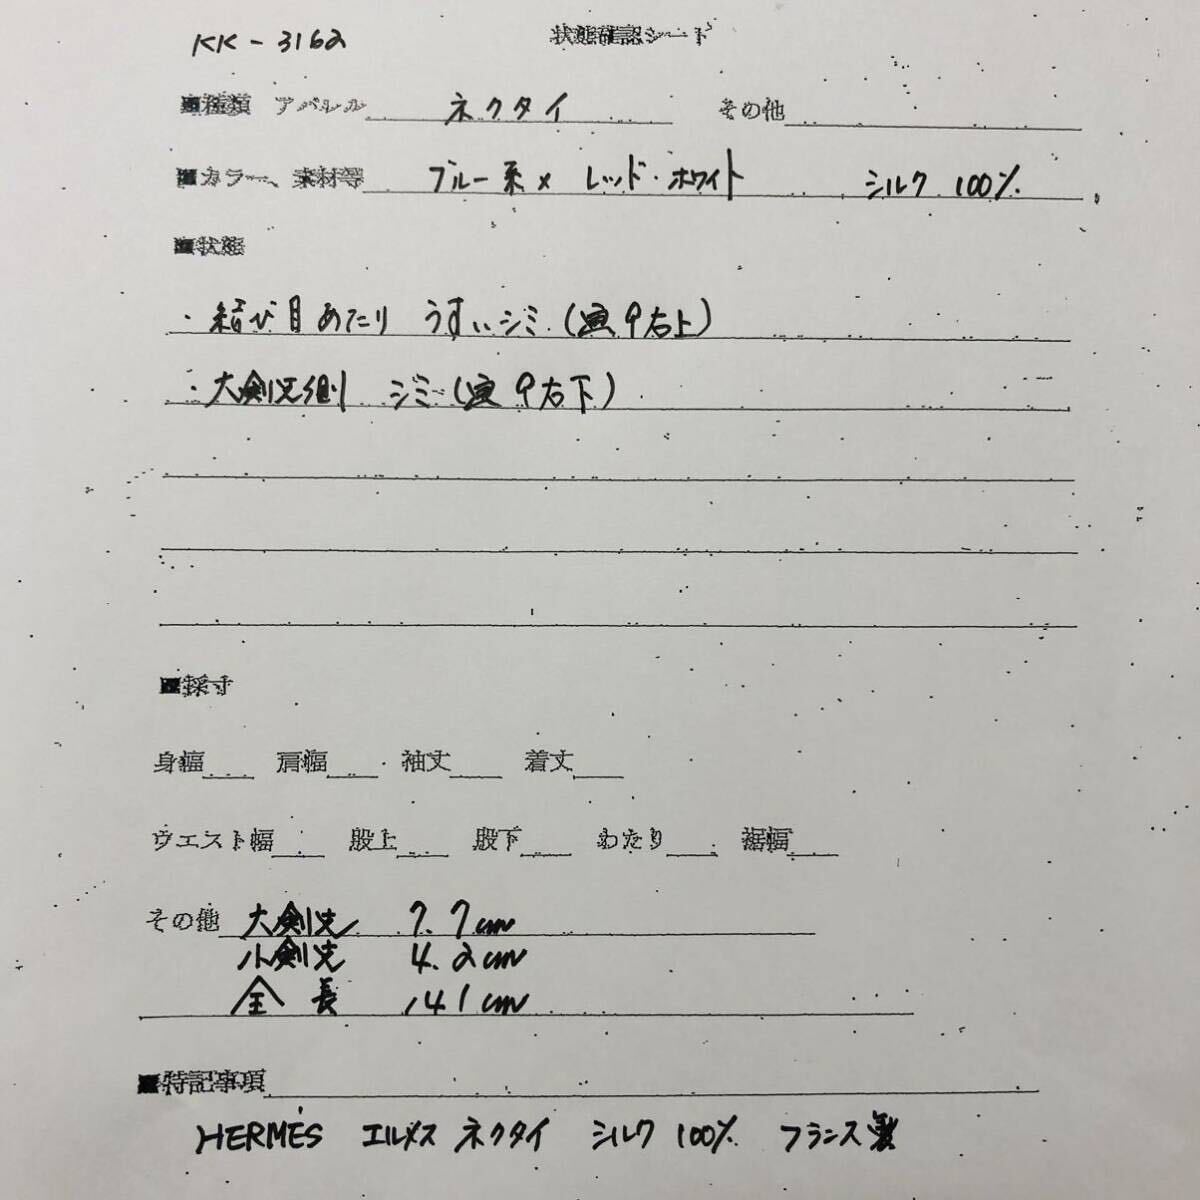 KK-3162
状態確認シート
■種類 アパレル ネクタイ その他
■カラー、素材等 ブルー系×レッド・ホワイト シルク 100%
■状態
・結び目あたり うすいシミ(写9右上)
・大剣先側 シミ(写9右下)
■採寸
身幅 肩幅 袖丈 着丈
ウエスト幅 股上 股下 わたり 裾幅
その他 大剣先 7.7cm
小剣先 4.2cm
全長 141cm
■特記事項
HERMÈS エルメス ネクタイ シルク 100% フランス製